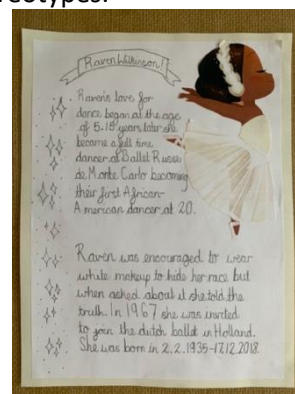 reotypes.
Raven Wilkinson!
Raven's love for
dance began at the age
of 5. 15 years later she
became a full time
dancer at Ballet Russe
de Monte Carlo becoming
their first African-
American dancer at 20.
Raven was encouraged to wear
white makeup to hide her race but
when asked about it she told the
truth. In 1967 she was invited
to join the dutch ballet in Holland.
She was born in 2.2.1935-17.12.2018.